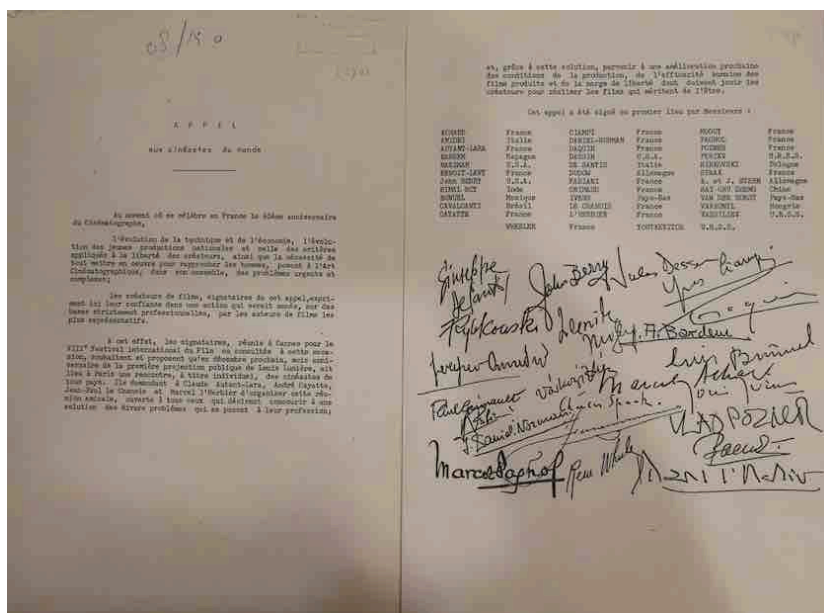 A P P E L
aux cinéastes du monde
Au moment où se célèbre en France le 60ème anniversaire
du Cinématographe,
l'évolution de la technique et de l'économie, l'évolu-
tion des jeunes productions nationales et celle des critères
appliqués à la liberté des créateurs, ainsi que la nécessité de
tout mettre en oeuvre pour rapprocher les hommes, posent à l'Art
Cinématographique, dans son ensemble, des problèmes urgents et
complexes;
les créateurs de films, signataires de cet appel, expri-
ment ici leur confiance dans une action qui serait menée, sur des
bases strictement professionnelles, par les auteurs de films les
plus représentatifs.
A cet effet, les signataires, réunis à Cannes pour le
VIII° Festival International du Film ou consultés à cette occa-
sion, souhaitent et proposent qu'en décembre prochain, mois anni-
versaire de la première projection publique de Louis Lumière, ait
lieu à Paris une rencontre, à titre individuel, des cinéastes de
tous pays. Ils demandent à Claude Autant-Lara, André Cayatte,
Jean-Paul le Chanois et Marcel l'Herbier d'organiser cette réu-
nion amicale, ouverte à tous ceux qui désirent concourir à une
solution des divers problèmes qui se posent à leur profession;
et, grâce à cette solution, parvenir à une amélioration prochaine
des conditions de la production, de l'efficacité humaine des
films produits et de la marge de liberté dont doivent jouir les
créateurs pour réaliser les films qui méritent de l'être.
Cet appel a été signé en premier lieu par Messieurs :
ACHARD France CIAMPI France MOUSSY France
AMIDEI Italie DANIEL-NORMAN France PAGNOL France
AUTANT-LARA France DAQUIN France POZNER France
BARDEM Espagne DASSIN U.S.A. U.R.S.S.
U.S.A. DE SANTIS Italie Pologne
BENOIT-LEVY France DUDOW Allemagne SPAAK France
John BERRY U.S.A. FABIANI France A. et J. STERN Allemagne
BIMAL ROY Inde GRIMAUD France Chine
BUNUEL Mexique IVENS Pays-Bas VAN DER HORST Pays-Bas
CAVALCANTI Brésil LE CHANOIS France Hongrie
CAYATTE France L'HERBIER France VASSILIEV U.R.S.S.
WHEELER France YOUTKEVITCH U.R.S.S.
Giuseppe John Berry Jules Dassin
De Santis Yves Ciampi
J.A. Bardem
Luis Bunuel
Marcel Achard
J. Daniel Norman Charles Spaak
VLAD POZNER
Marcel Pagnol René Wheeler